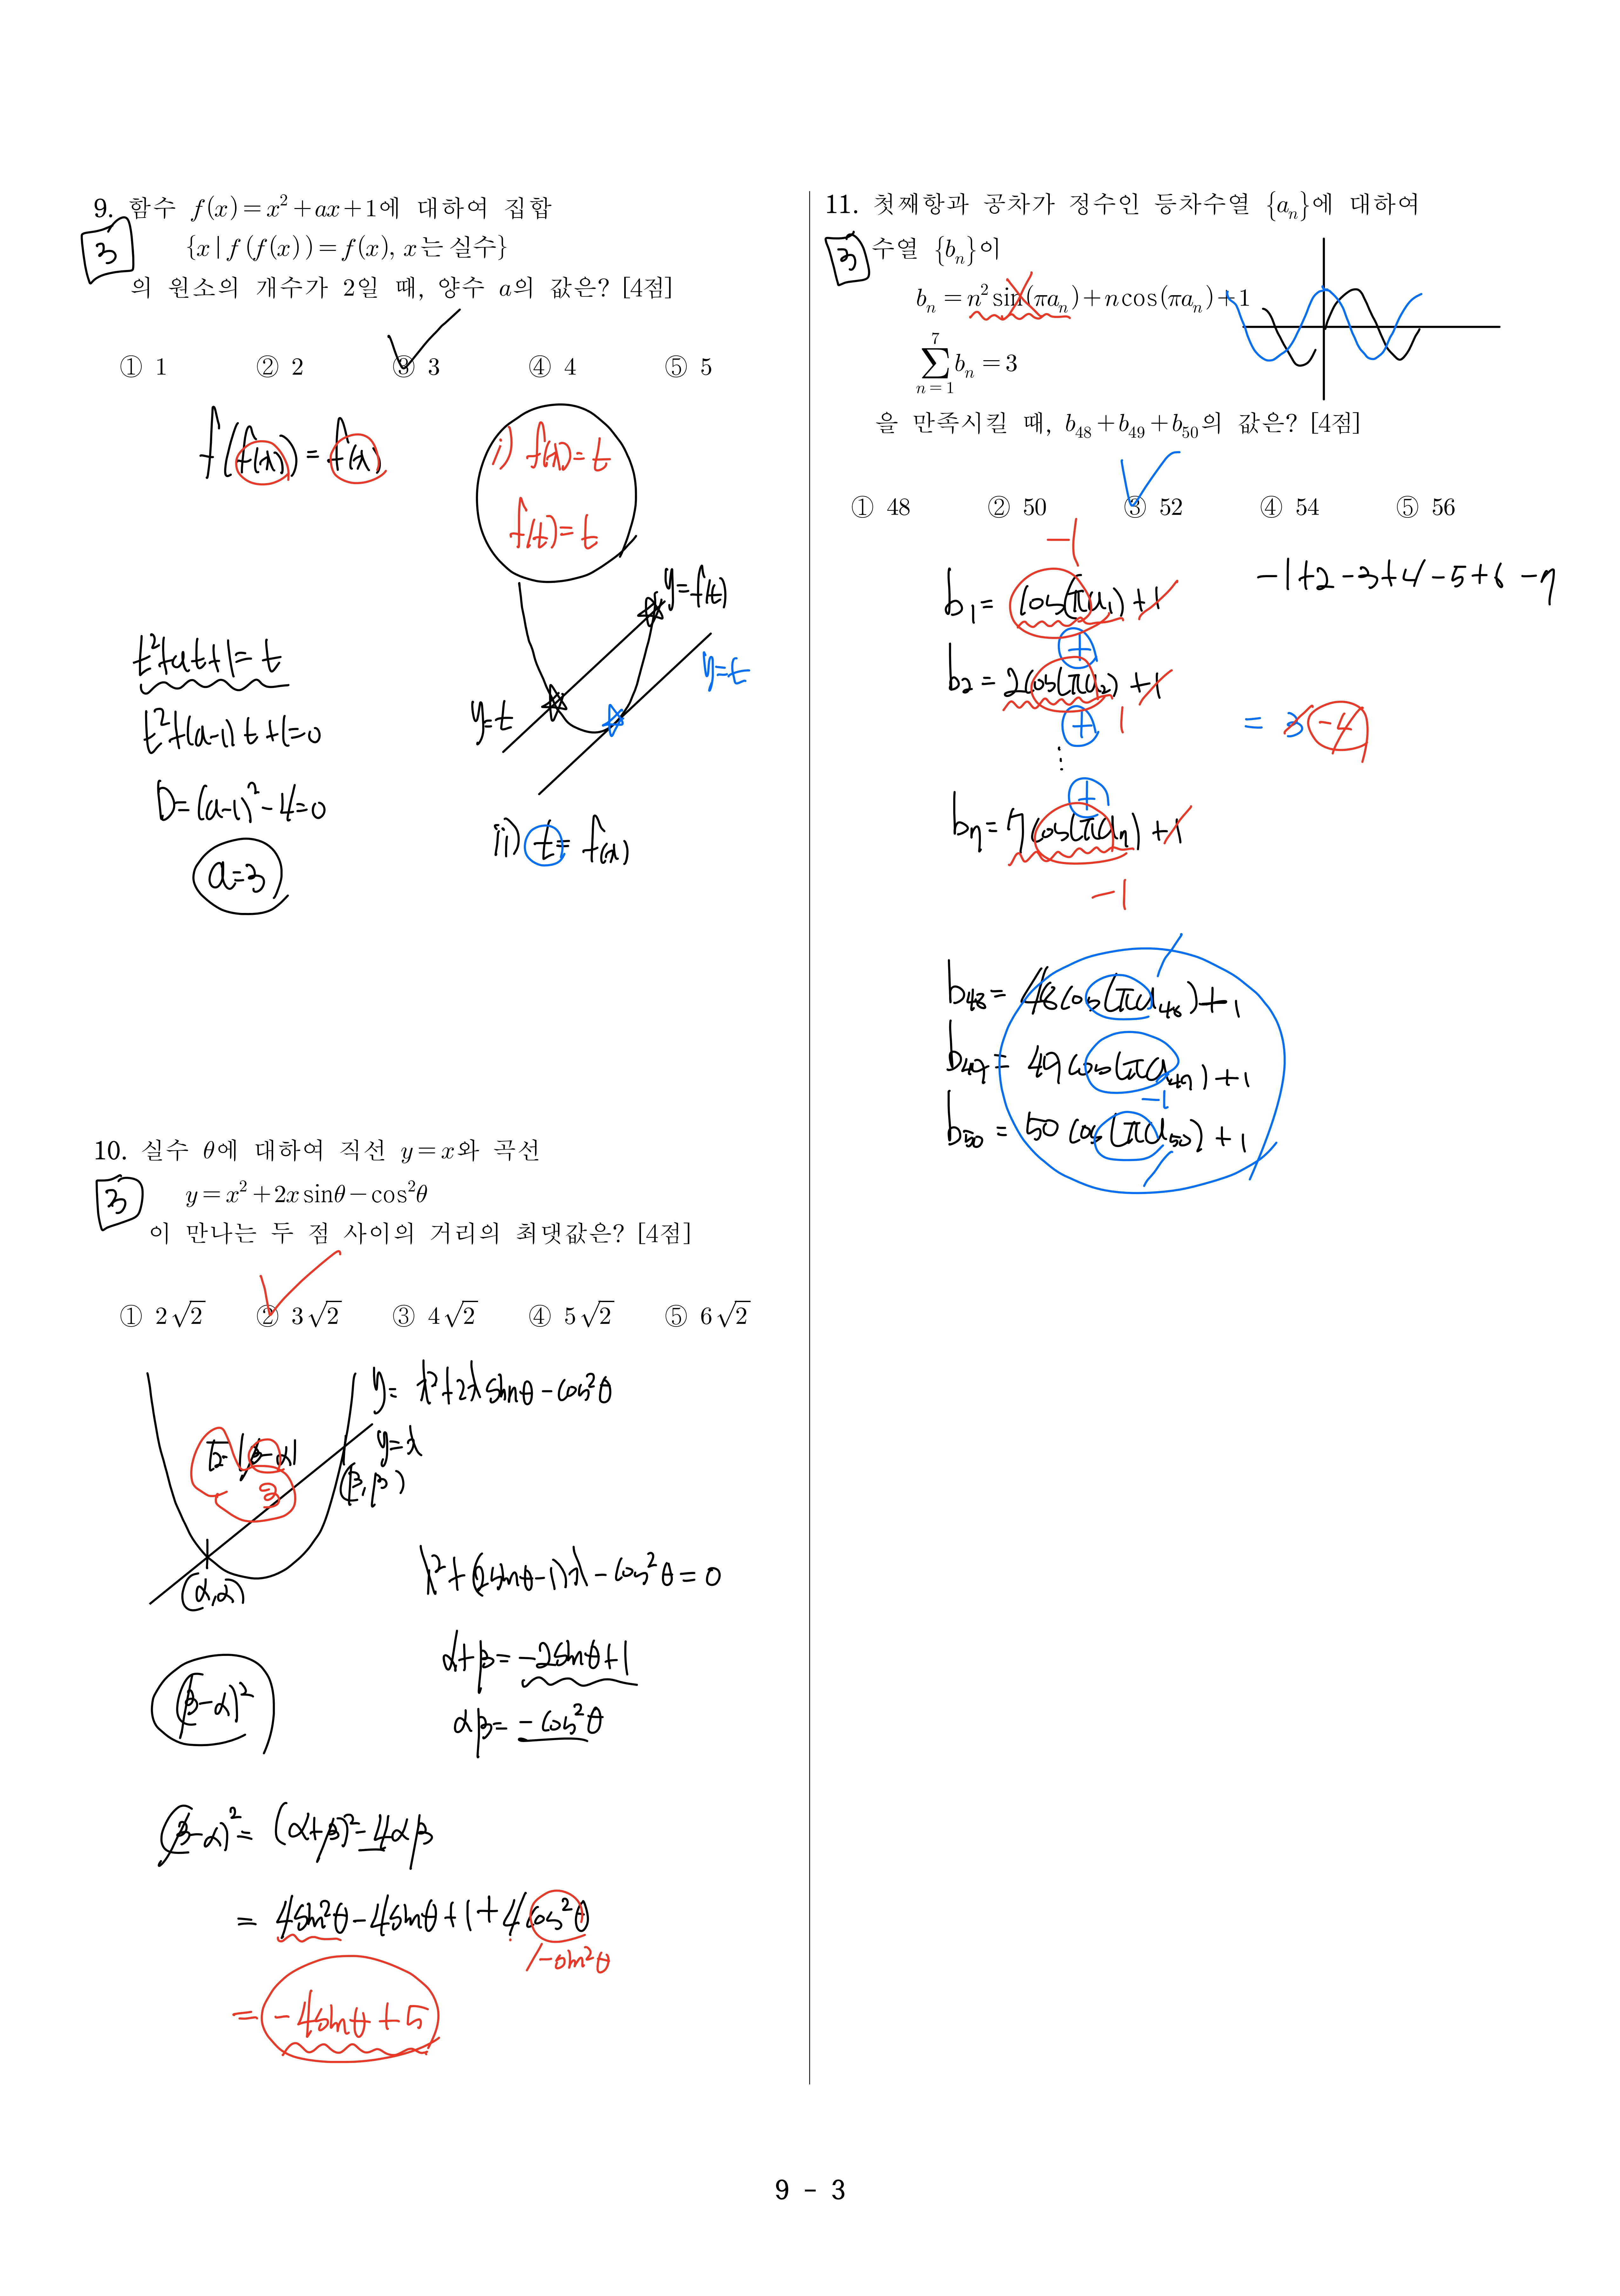 9. 함수 f(x)=x²+ax+1에 대하여 집합
3
{x | f(f(x))=f(x), x는 실수}
의 원소의 개수가 2일 때, 양수 a의 값은? [4점]
① 1 ② 2 ③ 3 ④ 4 ⑤ 5
f(f(x))=f(x)
i) f(x)=t
f(t)=t
y=f(t)
y=t
y=t
t²+at+1=t
t²+(a-1)t+1=0
D=(a-1)²-4=0
a=3
ii) t=f(x)
10. 실수 θ에 대하여 직선 y=x와 곡선
3
y=x²+2x sinθ-cos²θ
이 만나는 두 점 사이의 거리의 최댓값은? [4점]
① 2√2 ② 3√2 ③ 4√2 ④ 5√2 ⑤ 6√2
y= x²+2x sinθ-cos²θ
y=x
(β,β)
√2|β-α|
3
(α,α)
x²+(2sinθ-1)x-cos²θ=0
α+β=-2sinθ+1
αβ=-cos²θ
(β-α)²
(β-α)²=(α+β)²-4αβ
= 4sin²θ-4sinθ+1+4cos²θ
1-sin²θ
= -4sinθ+5
11. 첫째항과 공차가 정수인 등차수열 {aₙ}에 대하여
3
수열 {bₙ}이
bₙ=n²sin(πaₙ)+n cos(πaₙ)+1
∑_{n=1}^{7} bₙ=3
을 만족시킬 때, b₄₈+b₄₉+b₅₀의 값은? [4점]
① 48 ② 50 ③ 52 ④ 54 ⑤ 56
-1
-1+2-3+4-5+6-7
b₁= cos(πa₁)+1
+
b₂=2cos(πa₂)+1
+ 1
= 3 -4
⋮
+
b₇=7cos(πa₇)+1
-1
1
b₄₈=48cos(πa₄₈)+1
b₄₉= 49cos(πa₄₉)+1
-1
b₅₀= 50cos(πa₅₀)+1
1
9 - 3